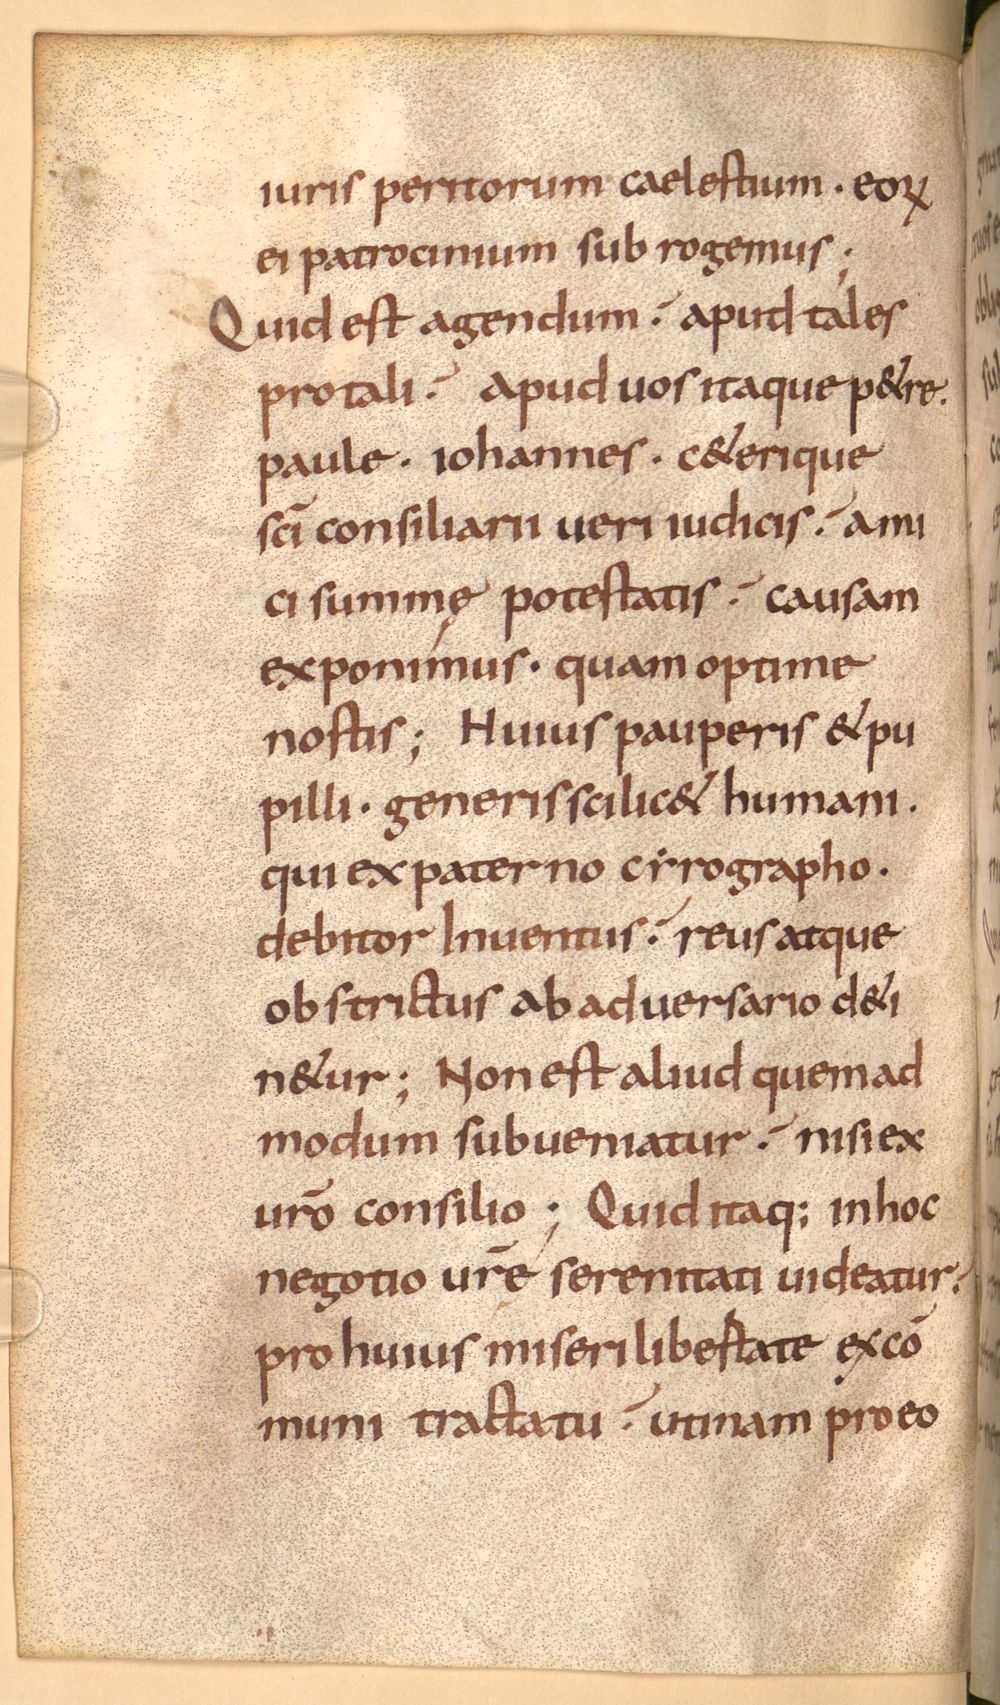 iuris peritorum caelestium · eoꝝ
ei patrocinium sub rogemus ;
Quid est agendum · apud tales
pro tali · apud uos itaque p&re .
paule · iohannes · c&erique
sci̅ consiliarii ueri iudicis · ami
ci summę potestatis · causam
exponimus · quam optime
nostis ; Huius pauperis & pu
pilli · generis scilic& humani .
qui ex paterno cyrographo .
debitor Inuentus · reus atque
obstrictus ab aduersario d&i
n&ur ; Non est aliud quemad
modum subueniatur · nisi ex
ur̅o consilio ; Quid itaq; in hoc
negotio ur̅e serenitati uideatur ·
pro huius miseri libestate ex co̅
muni tractatu · utinam pro eo